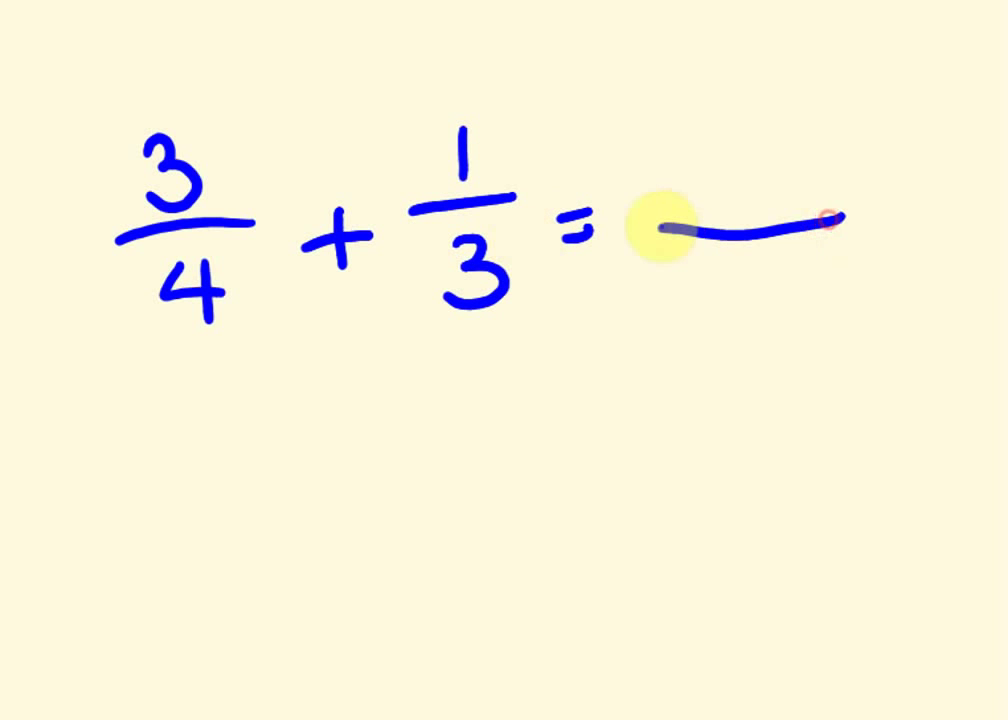 3/4 + 1/3 =